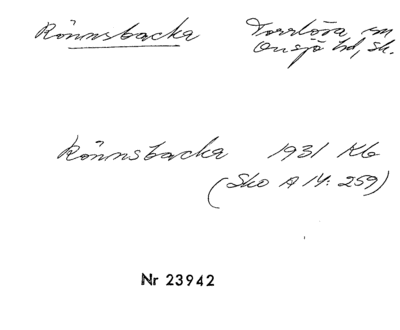 Rönnsbacka Torrlösa sn
Onsjö hd, Sk.
Rönnsbacka 1931 Kb
(Sko A 14: 259)
Nr 23942